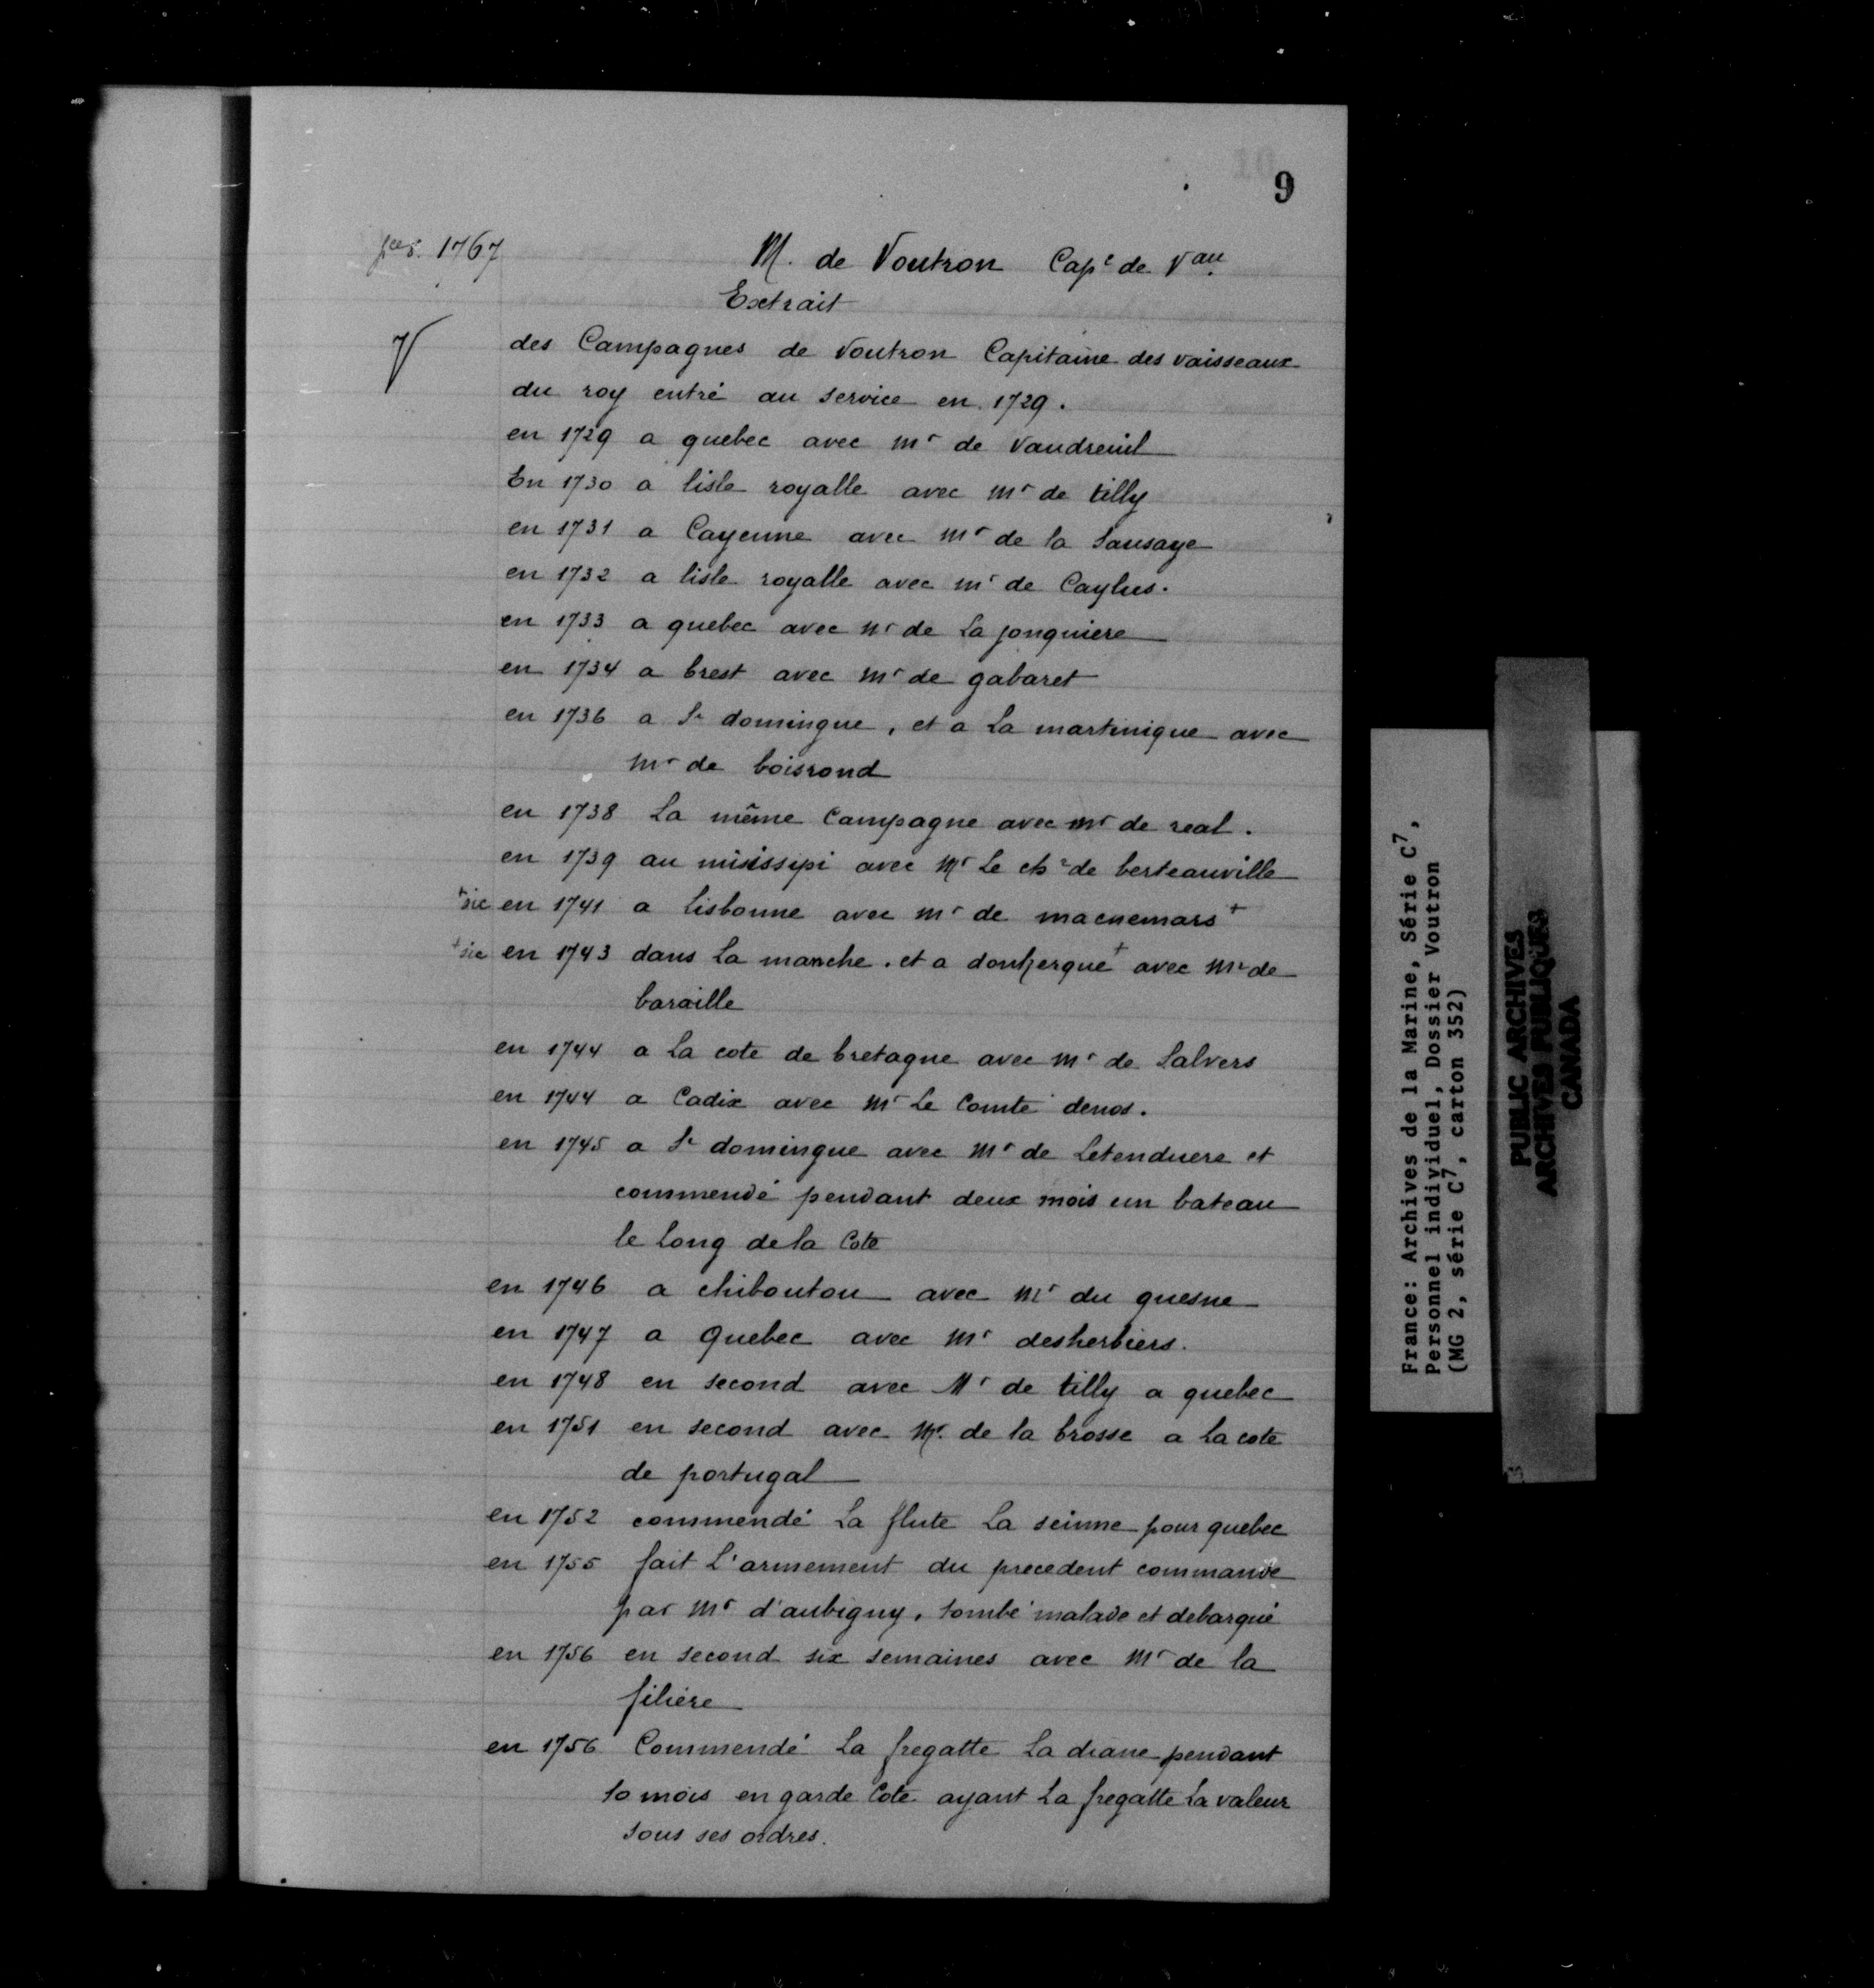 9
1767
M. de Voutron Cap^e de V^au
Extrait
V
des Campagnes de Voutron Capitaine des vaisseaux
du roy entré au service en 1729.
en 1729 a quebec avec m^r de Vaudreuil
En 1730 a lisle royalle avec m^r de tilly
en 1731 a Cayenne avec m^r de la Sausaye
en 1732 a lisle royalle avec m^r de Caylus.
en 1733 a quebec avec m^r de La jonquiere
en 1734 a brest avec m^r de gabaret
en 1736 a S^t domingue, et a La martinique avec
m^r de boisrond
en 1738 La même Campagne avec m^r de real.
en 1739 au misissipi avec M^r Le ch^r de berteauville
+sic en 1741 a Lisbonne avec m^r de macnemars+
+sic en 1743 dans La manche. et a donkerque+ avec m^r de
baraille
en 1744 a La cote de bretagne avec m^r de Salvers
en 1744 a Cadix avec m^r Le Comte denos.
en 1745 a S^t domingue avec m^r de Letenduere et
commendé pendant deux mois un bateau
le Long de la Cote
en 1746 a chiboutou avec m^r du quesne
en 1747 a Quebec avec m^r desherbiers.
en 1748 en second avec M^r de tilly a quebec
en 1751 en second avec M^r. de la brosse a La cote
de portugal
en 1752 commendé La flute La seinne pour quebec
en 1755 fait L'armement du precedent commande
par m^r d'aubigny, tombé malade et debarqué
en 1756 en second six semaines avec m^r de la
filiere
en 1756 Commendé La fregatte La diane pendant
10 mois en garde Cote ayant La fregatte La valeur
sous ses ordres.
France: Archives de la Marine, Série C7,
Personnel individuel, Dossier Voutron
(MG 2, série C7, carton 352)
PUBLIC ARCHIVES
ARCHIVES PUBLIQUES
CANADA